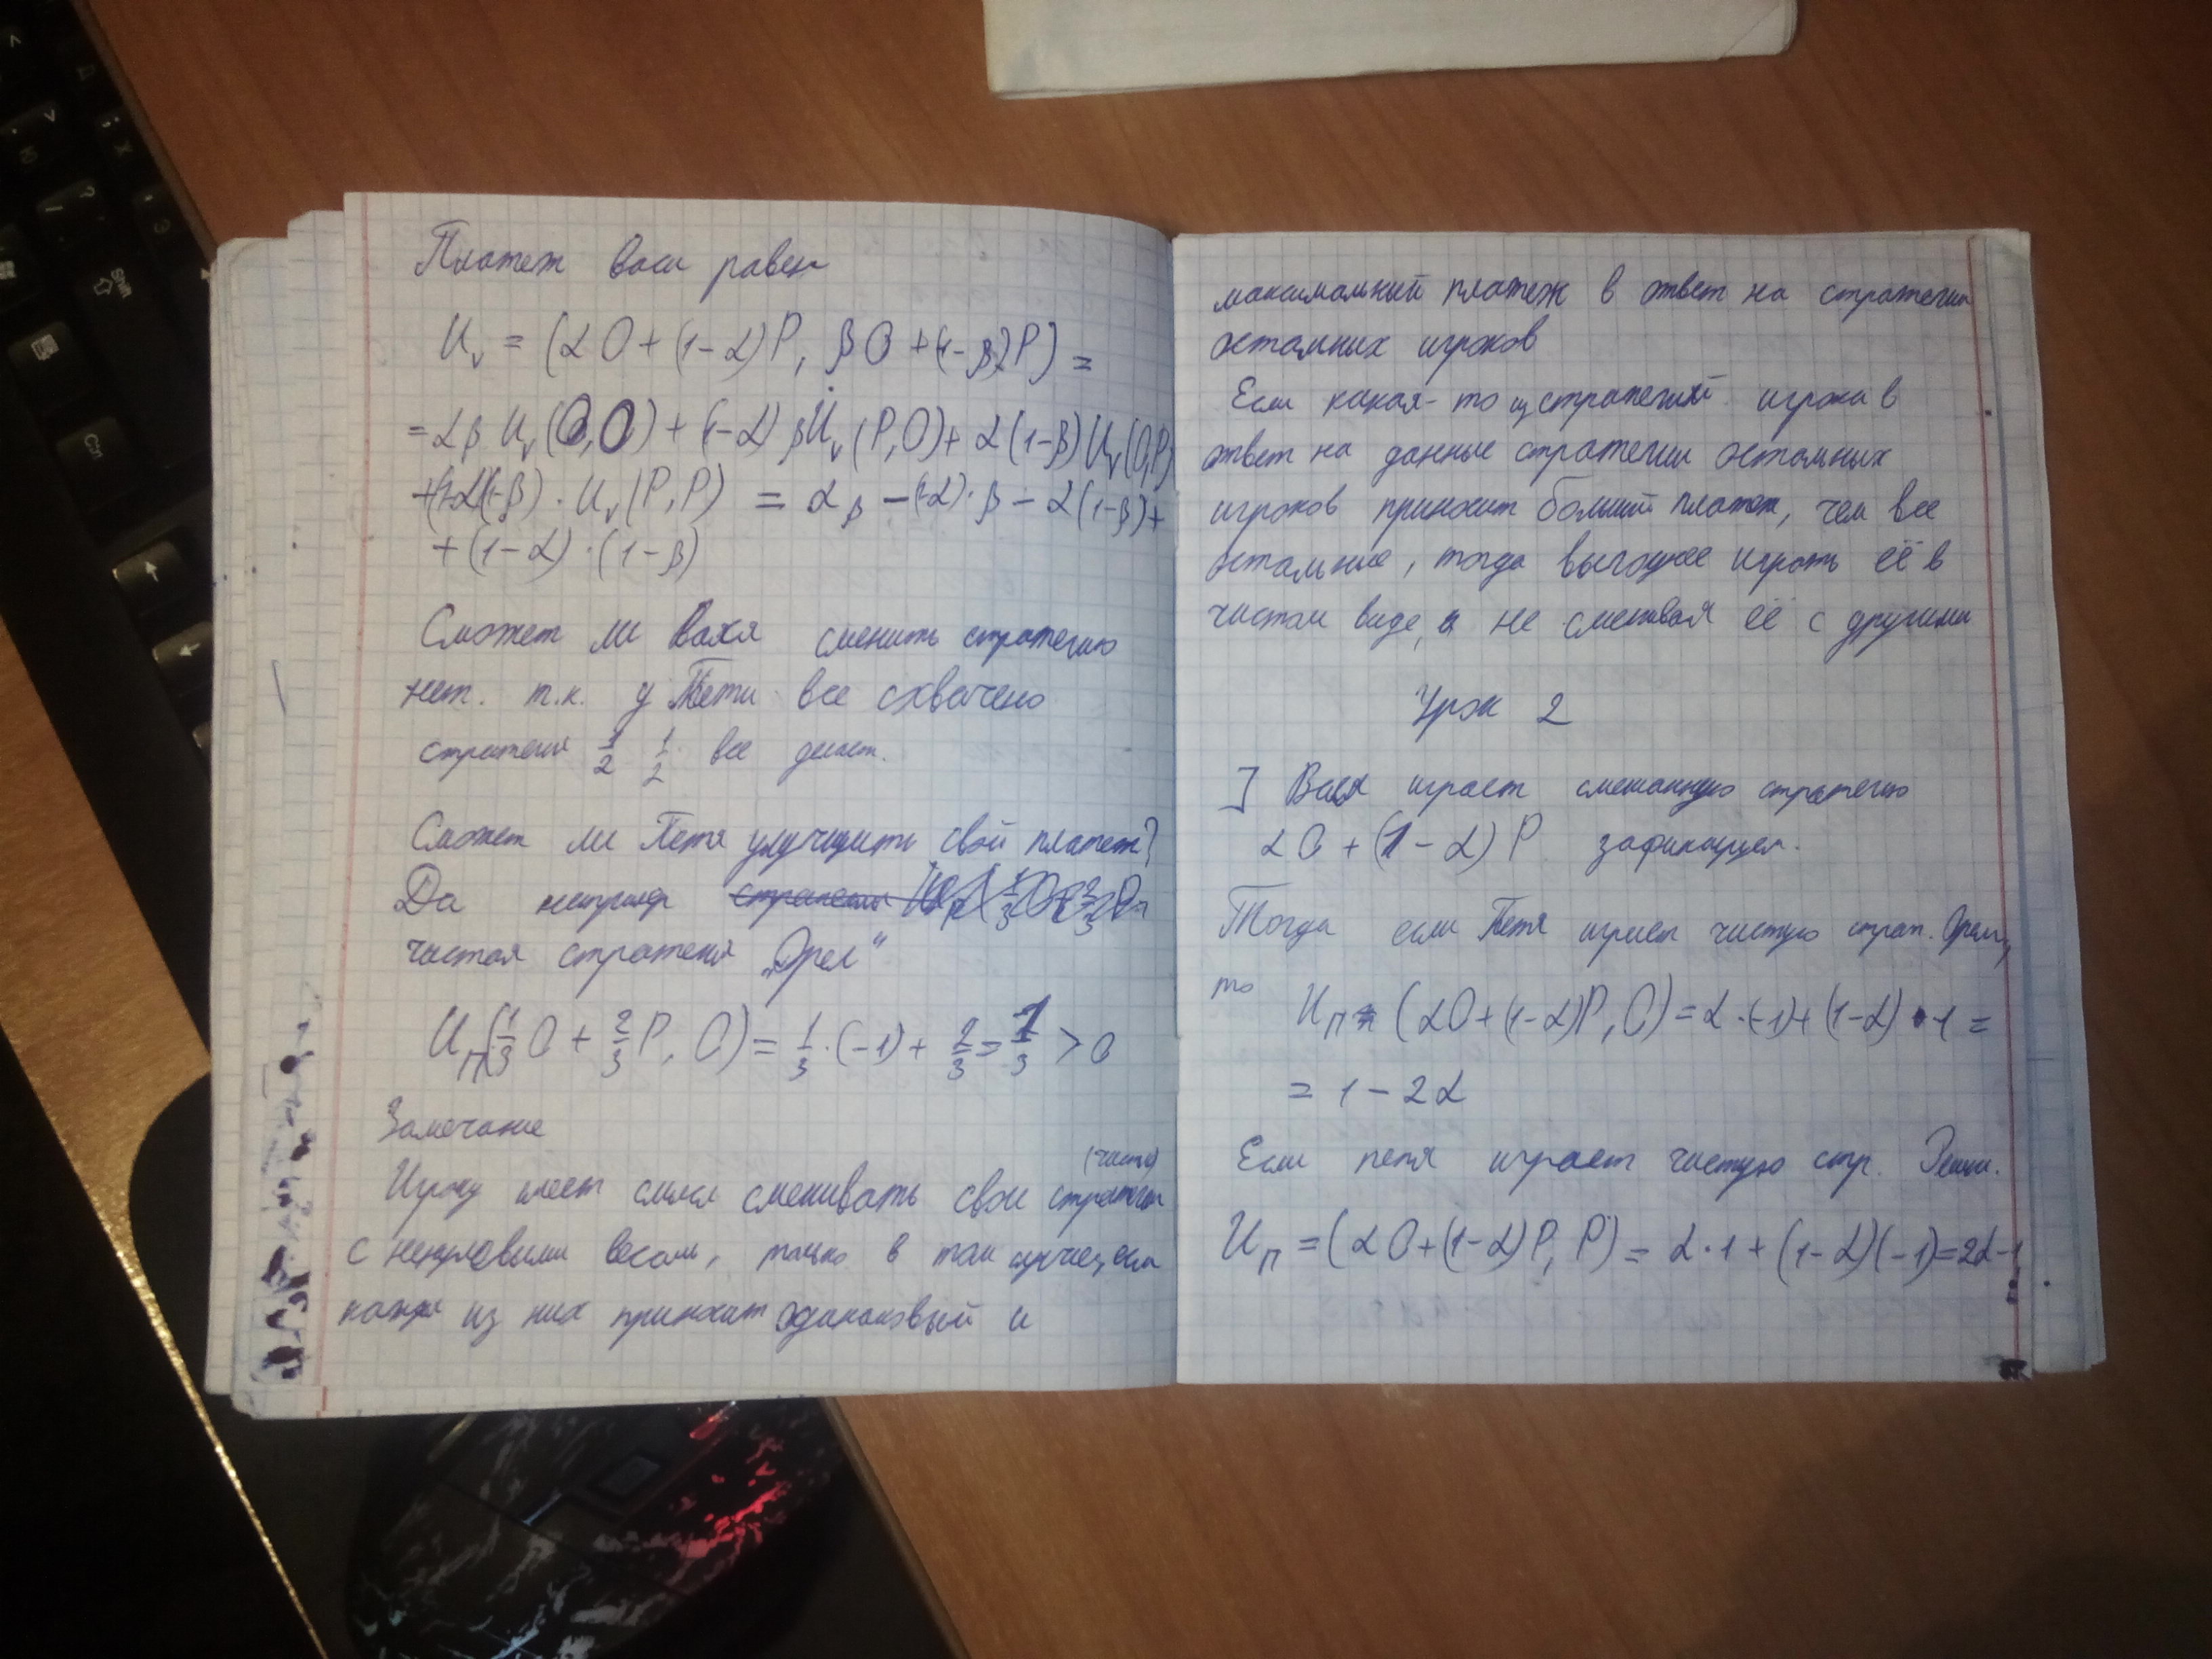 Платеж Васи равен
U_v = (αО + (1-α)Р, βО + (1-β)Р) =
= αβ U_v(О,О) + (1-α)βU_v(Р,О) + α(1-β)U_v(О,Р)
+(1-α)(1-β) · U_v(Р,Р) = αβ - (1-α)·β - α(1-β) +
+ (1-α)·(1-β)
Сможет ли Вася сменить стратегию
нет. т.к. у Пети все схвачено
стратегия 1/2 1/2 все делает.
Сможет ли Петя улучшить свой платеж?
Да например
чистая стратегия „Орел“
U_П(1/3 О + 2/3 Р, О) = 1/3·(-1) + 2/3 = 1/3 > 0
Замечание
(чисты)
Игроку имеет смысл смешивать свои стратегии
с ненулевыми весами, только в том случае, если
каждая из них приносит одинаковый и
максимальный платеж в ответ на стратегии
остальных игроков
Если какая-то из стратегий игрока в
ответ на данные стратегии остальных
игроков приносит больший платеж, чем все
остальные, тогда выгоднее играть её в
чистом виде, а не смешивая её с другими
Урок 2
] Вася играет смешанную стратегию
αО + (1-α)Р зафиксируем.
Тогда если Петя играет чистую страт. Орел,
то U_П = (αО + (1-α)Р, О) = α·(-1) + (1-α)·1 =
= 1 - 2α
Если петя играет чистую стр. Решка.
U_П = (αО + (1-α)Р, Р) = α·1 + (1-α)(-1) = 2α-1
Shift
Ctrl